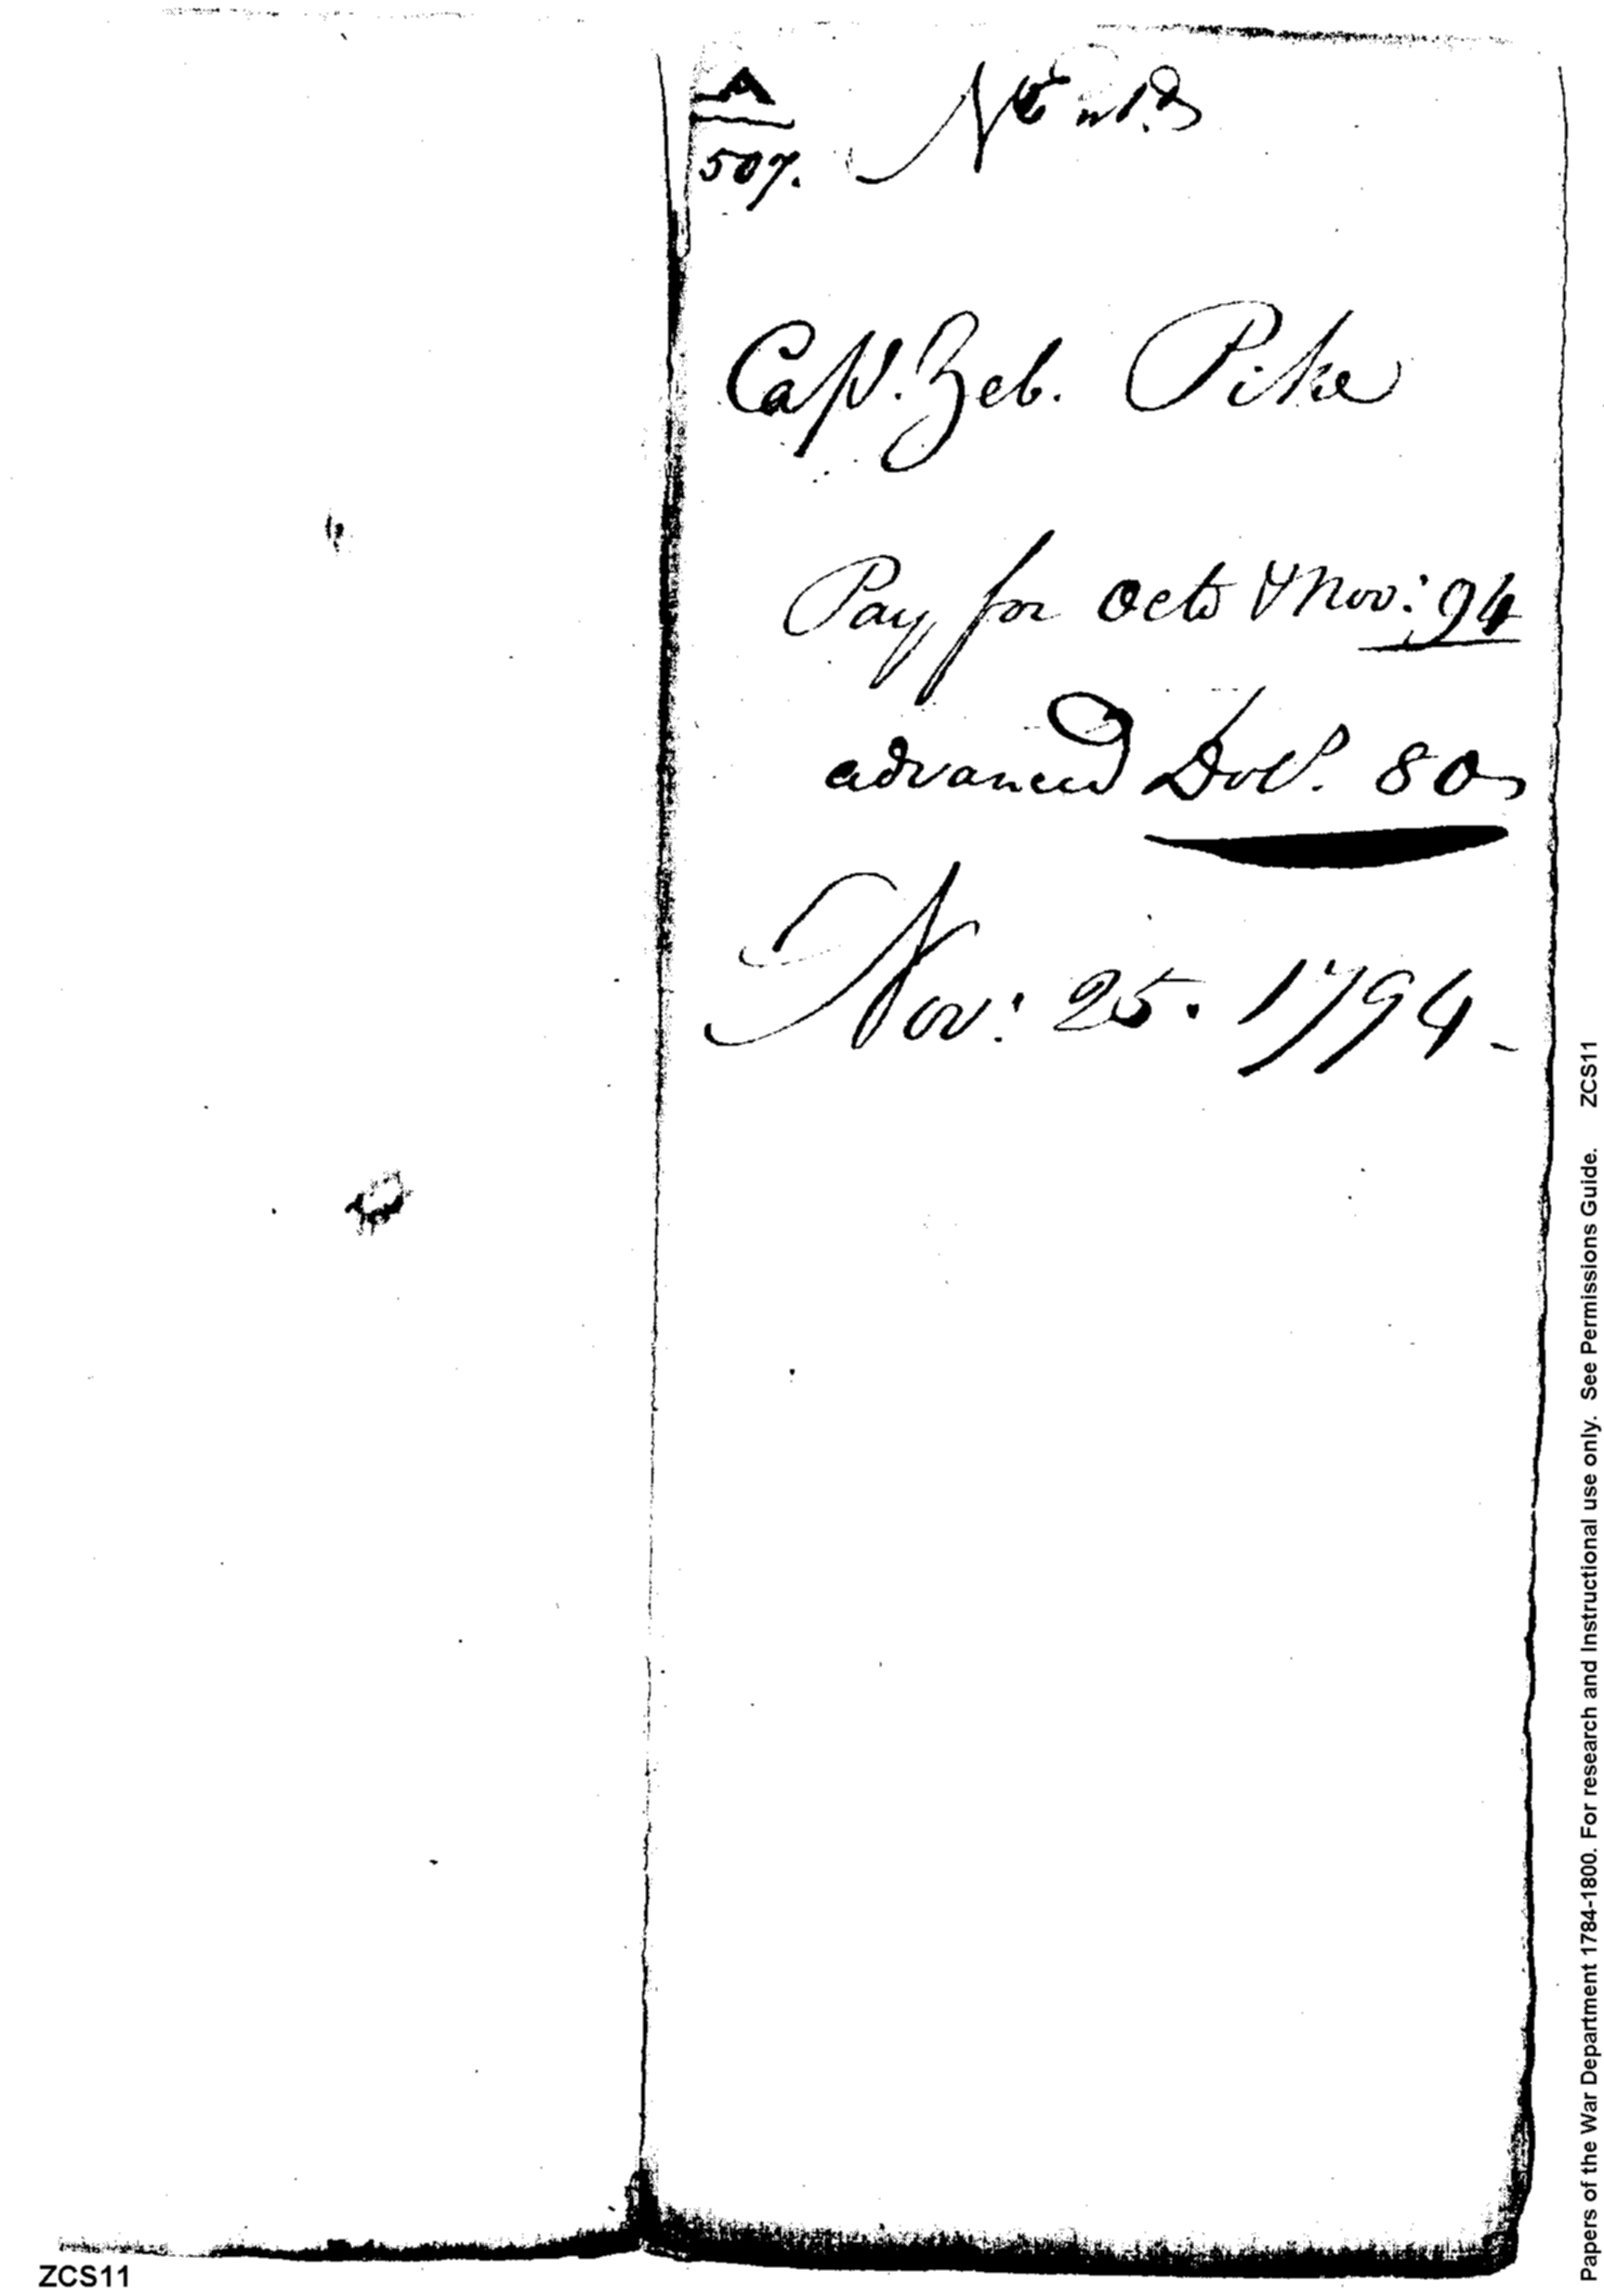 A
507.
Cap.t Zeb. Pike
Pay for Octo & Nov: 94
advanced Doll.s 80
Nov: 25. 1794 -
Papers of the War Department 1784-1800. For research and Instructional use only. See Permissions Guide. ZCS11
ZCS11